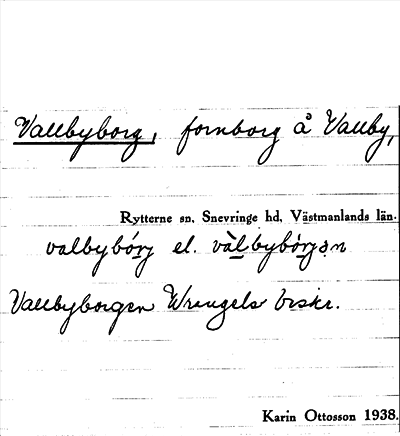 Vallbyborg, fornborg å Vallby,
Rytterne sn, Snevringe hd, Västmanlands län.
valbybórj el. vàlbybórjan
Vallbyborgen Wrangels beskr.
Karin Ottosson 1938.